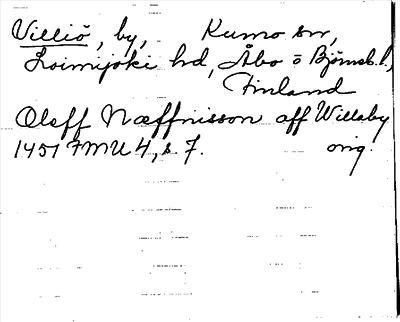 Villiö, by, Kumo sn,
Loimijoki hd, Åbo o Björneb. l.,
Finland
Oleff Næffnisson aff Willaby
1451 FMU 4, s. 7. orig.